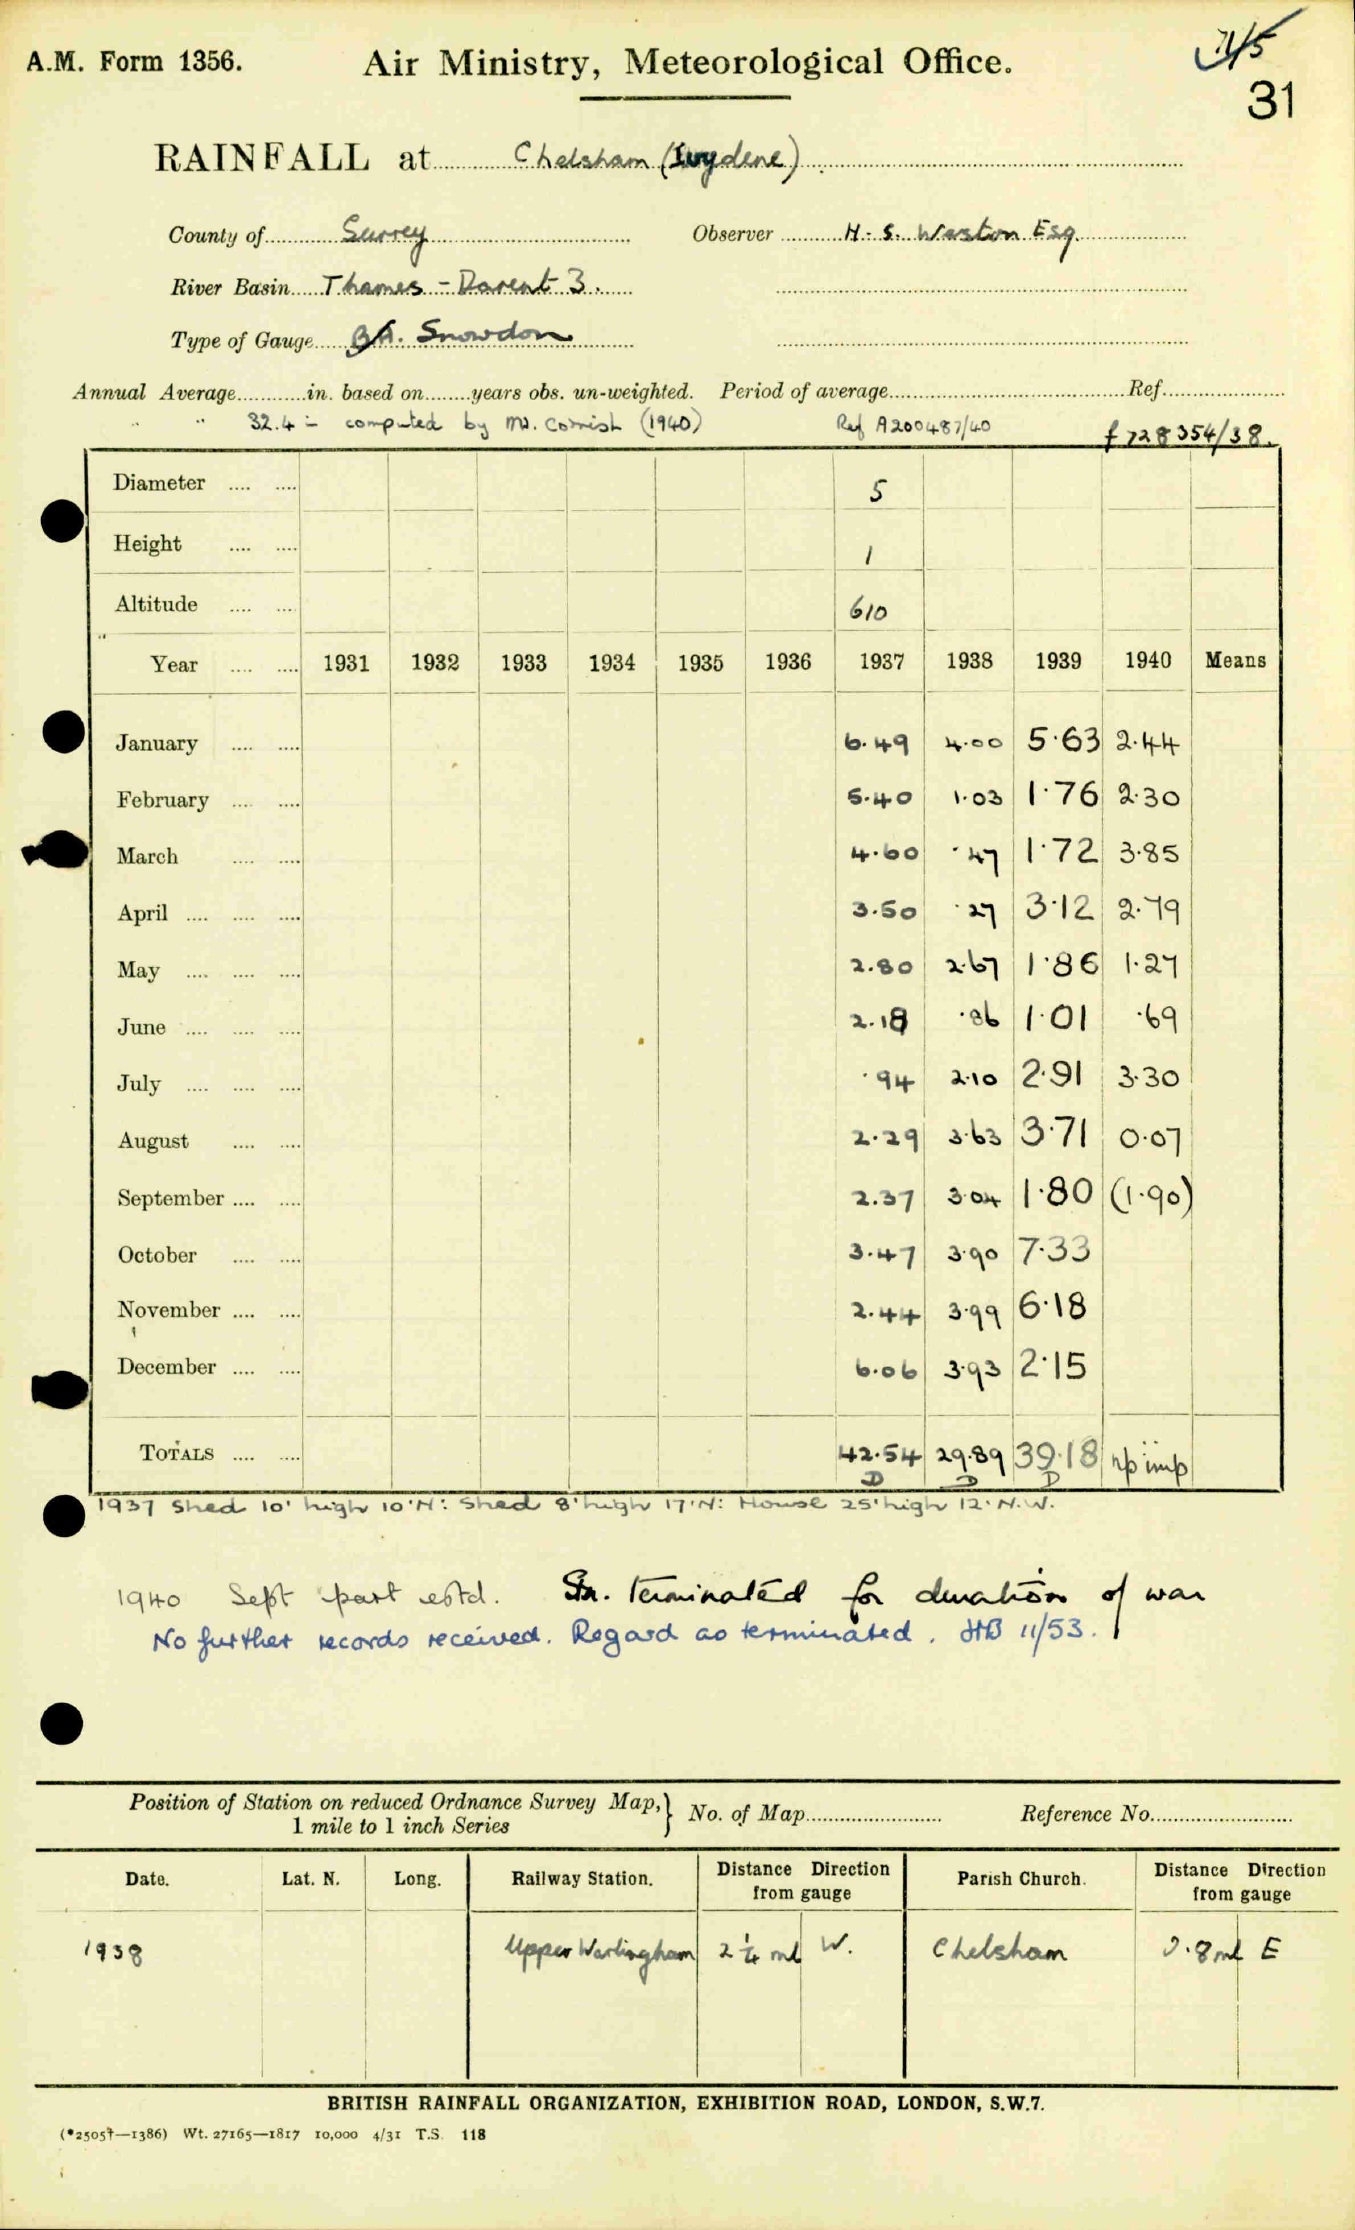 A.M. Form 1356. Air Ministry, Meteorological Office.
31
RAINFALL at Chelsham (Ivydene)
County of Surrey Observer H. S. Weston Esq.
River Basin Thames - Darent 3.
Type of Gauge Snowdon
Annual Average in. based on years obs. un-weighted. Period of average Ref.
" " 32.4 - computed by Mr. Cornish (1940) Ref A200487/40 f728354/38.
Diameter 5
Height 1
Altitude 610
Year 1931 1932 1933 1934 1935 1936 1937 1938 1939 1940 Means
January 6.49 4.00 5.63 2.44
February 5.40 1.03 1.76 2.30
March 4.60 .47 1.72 3.85
April 3.50 .27 3.12 2.79
May 2.80 2.67 1.86 1.27
June 2.18 .86 1.01 .69
July .94 2.10 2.91 3.30
August 2.29 3.63 3.71 0.07
September 2.37 3.04 1.80 (1.90)
October 3.47 3.90 7.33
November 2.44 3.99 6.18
December 6.06 3.93 2.15
TOTALS 42.54 29.89 39.18 np imp
D D D
1937 Shed 10' high 10'N: Shed 8' high 17'N: House 25' high 12'N.W.
1940 Sept part estd. Stn. terminated for duration of war
No further records received. Regard as terminated. HB 11/53.
Position of Station on reduced Ordnance Survey Map, } No. of Map Reference No.
1 mile to 1 inch Series
Date. Lat. N. Long. Railway Station. Distance Direction from gauge Parish Church. Distance Direction from gauge
1938 Upper Warlingham 2 1/4 ml W. Chelsham 0.8 ml E
BRITISH RAINFALL ORGANIZATION, EXHIBITION ROAD, LONDON, S.W.7.
Wt. 27165—1817 10,000 4/31 T.S. 118